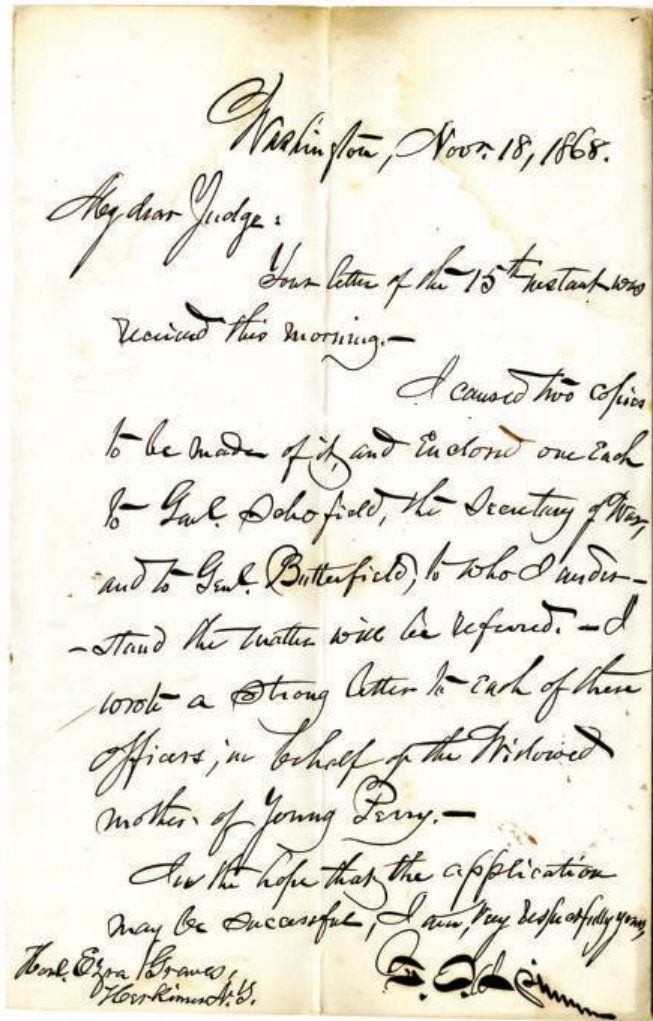 Washington, Novr. 18, 1868.
My dear Judge:
Your letter of the 15th instant was
received this morning.—
I caused two copies
to be made of it, and enclosed one each
to Genl. Schofield, the Secretary of War,
and to Genl. Butterfield, to who I under-
-stand the matter will be referred. — I
wrote a strong letter to each of these
officers, in behalf of the Widowed
mother of Young Perry.—
In the hope that the application
may be successful, I am, very respectfully yours,
Honl. Ezra Graves,
Herkimer N.Y.